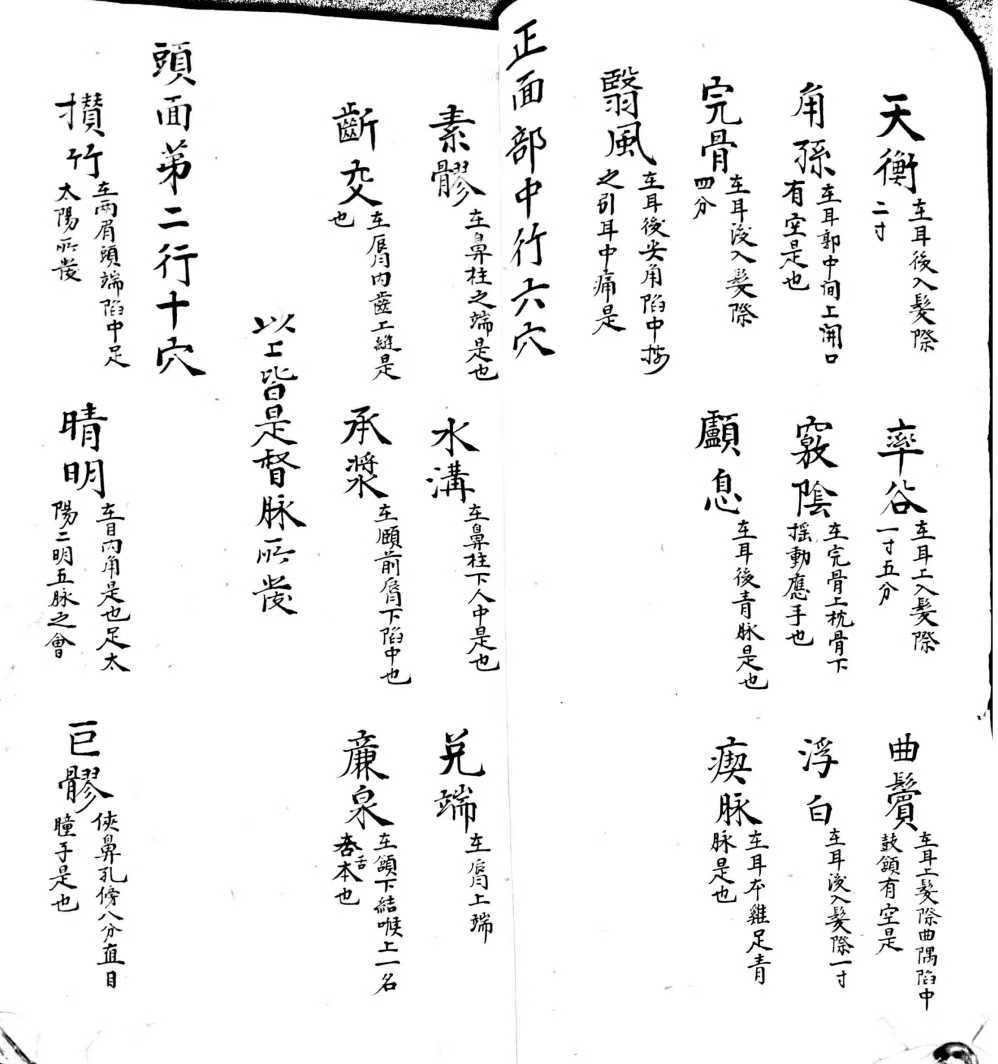 天衝 在耳後入髮際二寸
率谷 在耳上入髮際一寸五分
曲鬢 在耳上髮際曲隅陷中鼓頷有空是
角孫 在耳郭中间上開口有空是也
竅陰 在完骨上枕骨下摇動應手也
浮白 在耳後入髮際一寸
完骨 在耳後入髮際四分
顱息 在耳後青脉是也
瘈脉 在耳本雞足青脉是也
翳風 在耳後尖角陷中按之引耳中痛是
正面部中行六穴
素髎 在鼻柱之端是也
水溝 在鼻柱下人中是也
兑端 在唇上端
齗交 在唇内齒上縫是也
承漿 在頤前唇下陷中也
廉泉 在頷下結喉上一名舌本也
以上皆是督脉所發
頭面第二行十穴
攢竹 在兩眉頭端陷中足太陽所發
晴明 在目内角是也足太陽二明五脉之會
巨髎 俠鼻孔傍八分直目瞳子是也